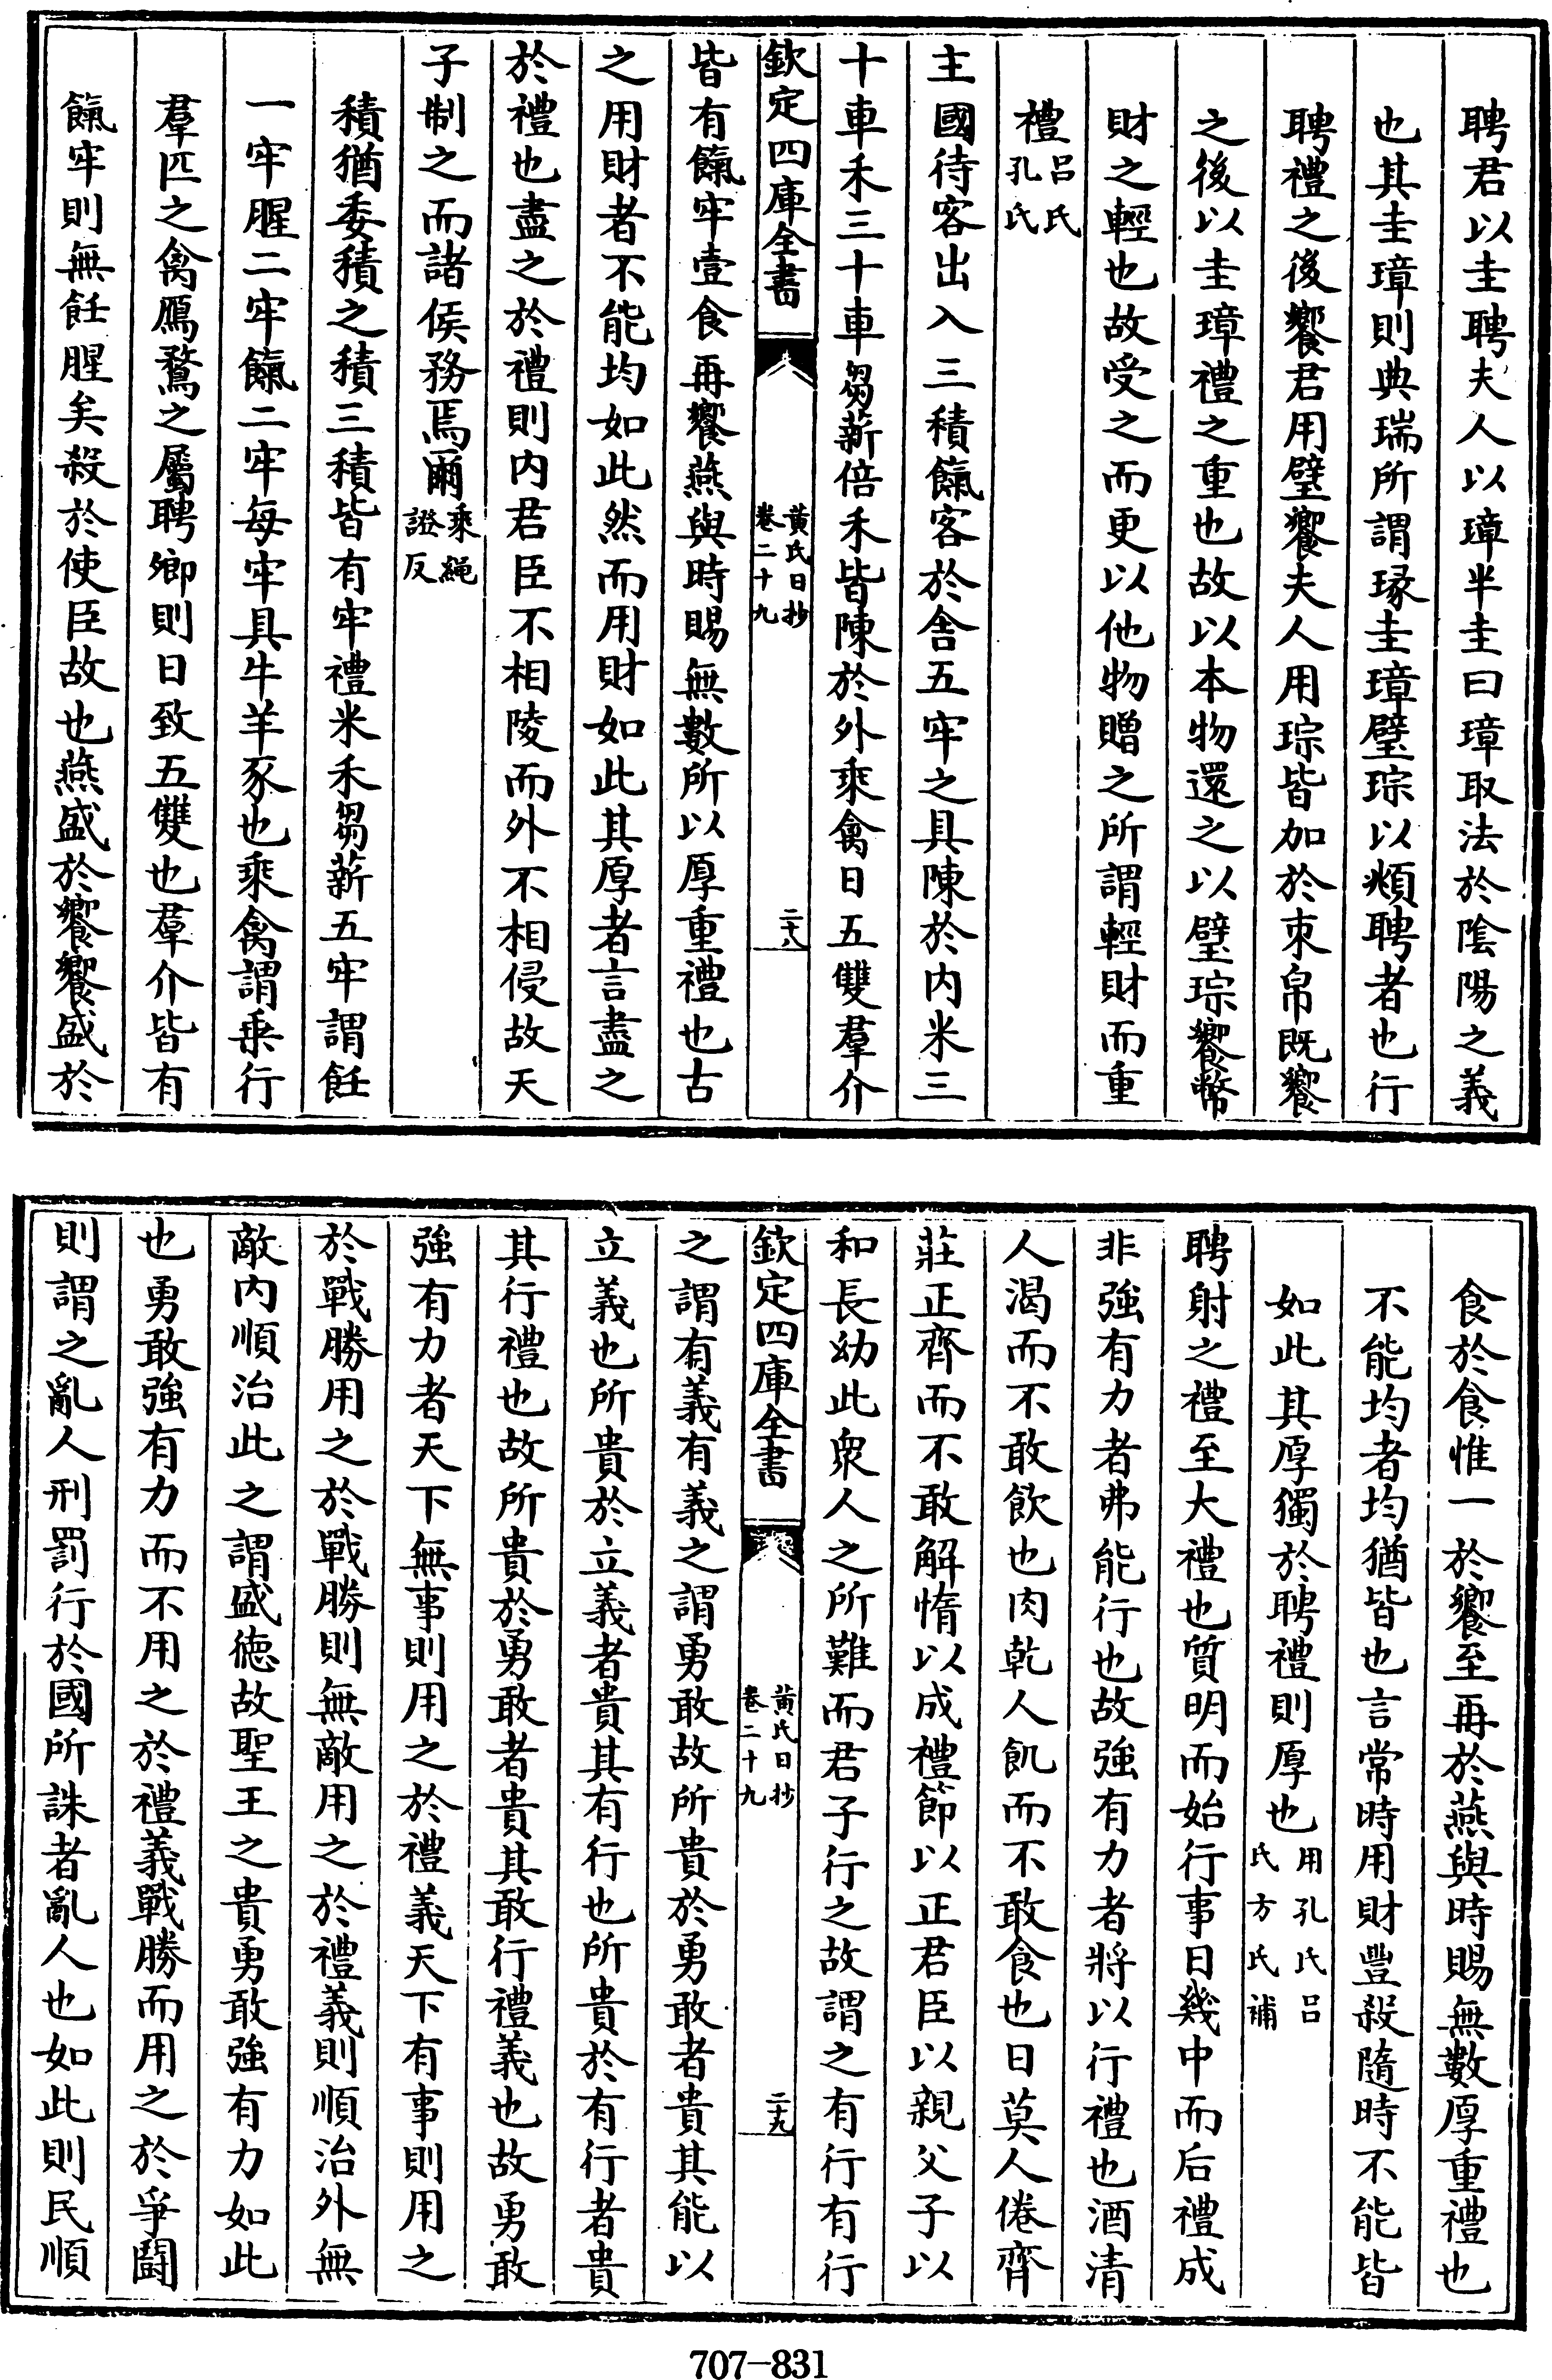 聘君以圭聘夫人以璋半圭曰璋取法於陰陽之義
也其圭璋則典瑞所謂瑑圭璋璧琮以頫聘者也行
聘禮之後饗君用璧饗夫人用琮皆加於束帛既饗
之後以圭璋禮之重也故以本物還之以璧琮饗幣
財之輕也故受之而更以他物贈之所謂輕財而重
禮呂氏孔氏
主國待客出入三積餼客於舍五牢之具陳於内米三
十車禾三十車芻薪倍禾皆陳於外乘禽日五雙羣介
欽定四庫全書 黄氏日抄卷二十九 二十八
皆有餼牢壹食再饗燕與時賜無數所以厚重禮也古
之用財者不能均如此然而用財如此其厚者言盡之
於禮也盡之於禮則内君臣不相陵而外不相侵故天
子制之而諸侯務焉爾乘繩證反
積猶委積之積三積皆有牢禮米禾芻薪五牢謂飪
一牢腥二牢餼二牢每牢具牛羊豕也乘禽謂乗行
羣匹之禽鴈鶩之屬聘卿則日致五雙也羣介皆有
餼牢則無飪腥矣殺於使臣故也燕盛於饗饗盛於
食於食惟一於饗至再於燕與時賜無數厚重禮也
不能均者均猶皆也言常時用財豐殺隨時不能皆
如此其厚獨於聘禮則厚也用孔氏吕氏方氏補
聘射之禮至大禮也質明而始行事日幾中而后禮成
非強有力者弗能行也故強有力者將以行禮也酒清
人渴而不敢飲也肉乾人飢而不敢食也日莫人倦齊
莊正齊而不敢解惰以成禮節以正君臣以親父子以
和長幼此衆人之所難而君子行之故謂之有行有行
欽定四庫全書 黄氏日抄卷二十九 二十九
之謂有義有義之謂勇敢故所貴於勇敢者貴其能以
立義也所貴於立義者貴其有行也所貴於有行者貴
其行禮也故所貴於勇敢者貴其敢行禮義也故勇敢
強有力者天下無事則用之於禮義天下有事則用之
於戰勝用之於戰勝則無敵用之於禮義則順治外無
敵内順治此之謂盛徳故聖王之貴勇敢強有力如此
也勇敢強有力而不用之於禮義戰勝而用之於爭鬬
則謂之亂人刑罰行於國所誅者亂人也如此則民順
707-831